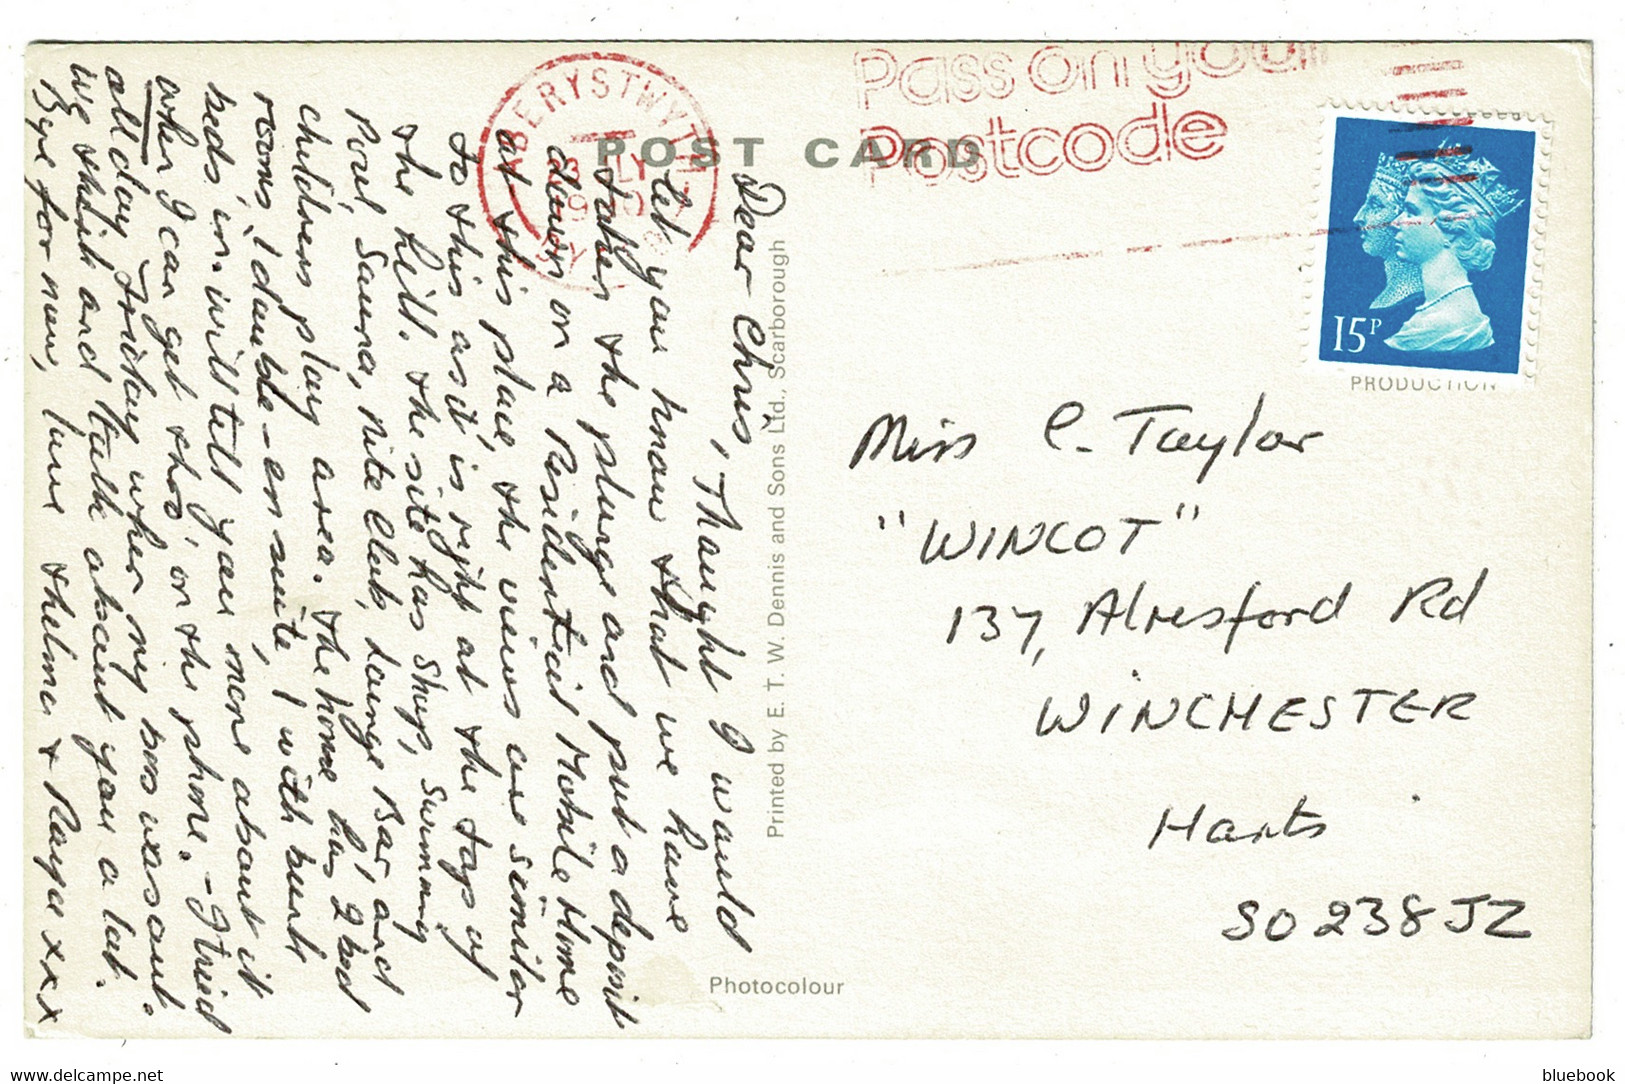 POST CARD
ABERYSTWYTH
LY
Pass on your
Postcode
15P
PRODUCTION
Dear Chris,
Thought I would
let you know that we have
taken the plunge and put a deposit
down on a Residential Mobile Home
at this place, the views are similar
to this as it is right at the top of
the hill. the site has Shop, Swimming
Pool, Sauna, Nite Club, Lounge Bar, and
childrens play area. the home has 2 bed
rooms, 1 double - en suite, 1 with bunk
beds in. will tell you more about it
when I can get thro' on the phone. - I tried
all day Friday when my boss was out.
We think and talk about you a lot.
Bye for now, love thelma & Roger xxx
Miss C. Taylor
"WINCOT"
137, Alresford Rd
WINCHESTER
Hants
SO23 8JZ
Printed by E. T. W. Dennis and Sons Ltd., Scarborough
Photocolour
www.delcampe.net
bluebook